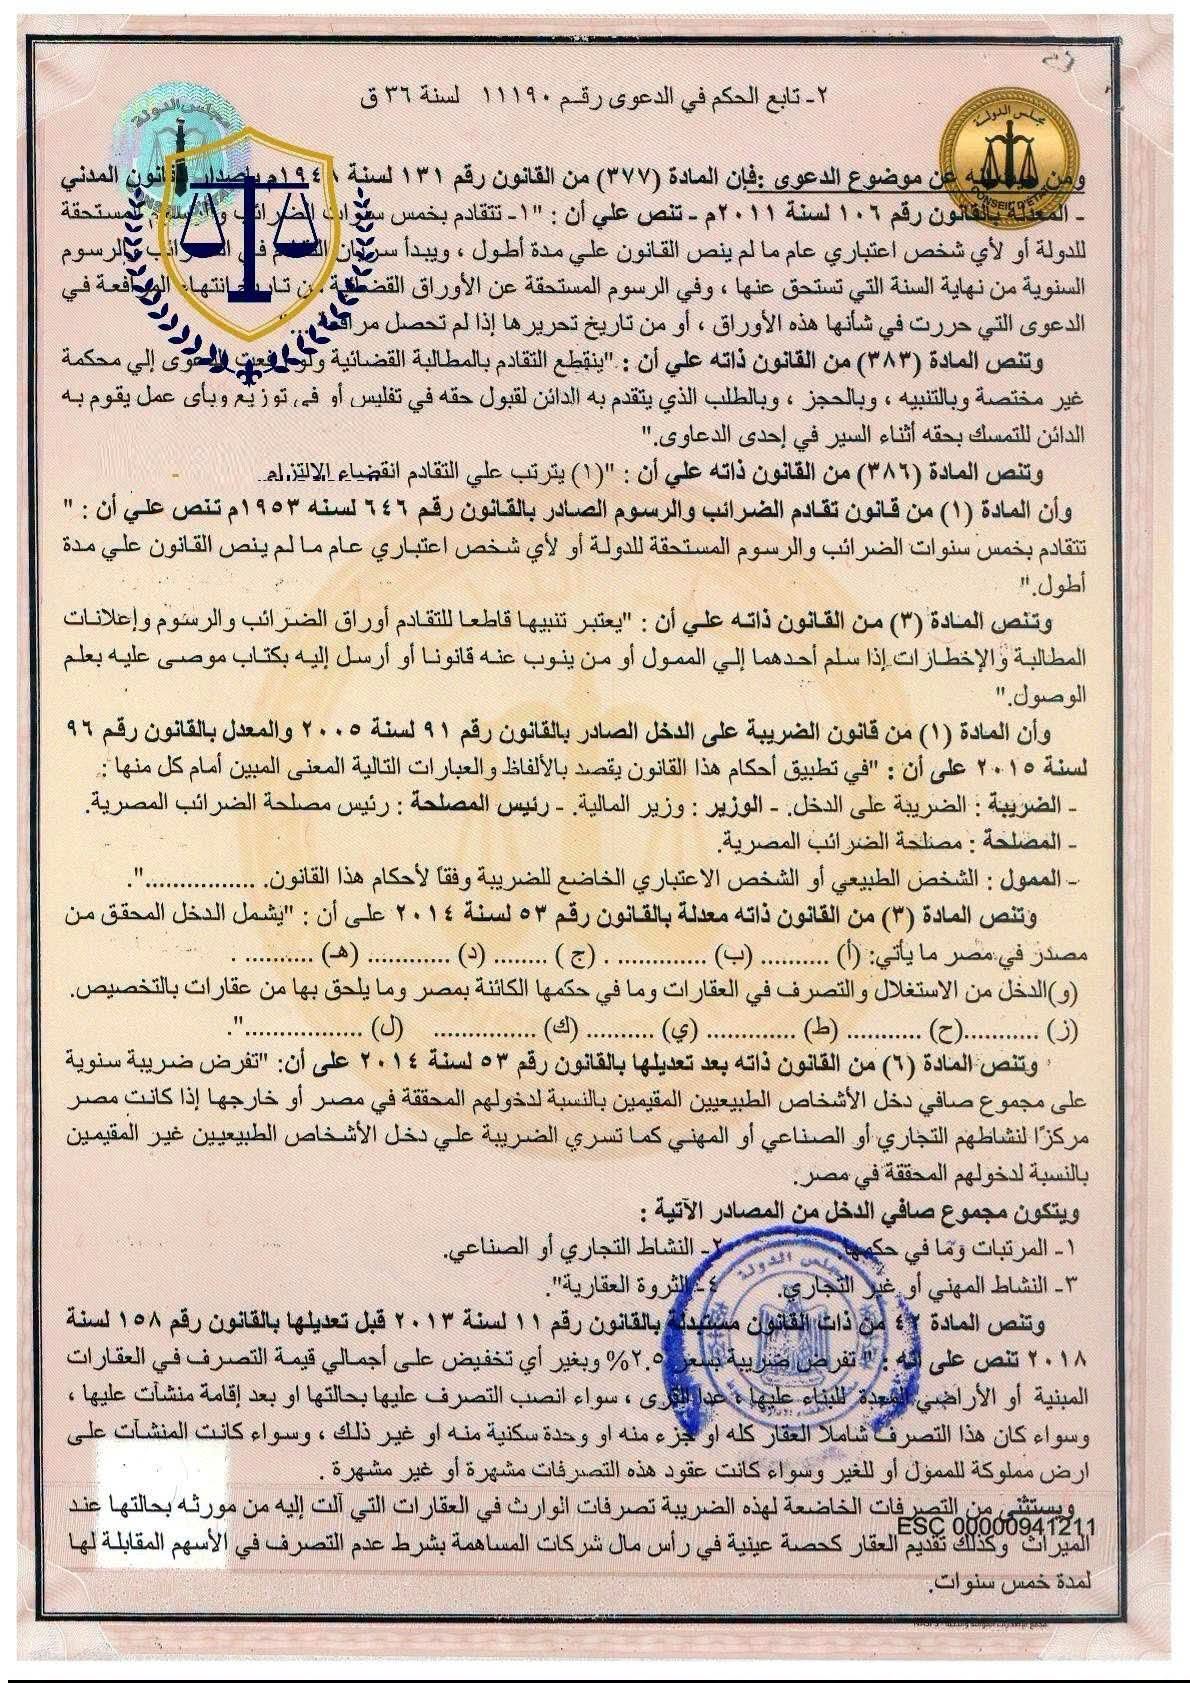 ٢- تابع الحكم في الدعوى رقم ١١١٩٠ لسنة ٣٦ ق
مجلس الدولة
مجلس الدولة
CONSEIL D'ETAT
عن موضوع الدعوى :فإن المادة (٣٧٧) من القانون رقم ١٣١ لسنة ١٩٤٨م بإصدار القانون المدني
- المعدلة بالقانون رقم ١٠٦ لسنة ٢٠١١م - تنص علي أن : "١- تتقادم بخمس سنوات الضرائب والرسوم المستحقة
للدولة أو لأي شخص اعتباري عام ما لم ينص القانون علي مدة أطول ، ويبدأ سريان التقادم في الضرائب والرسوم
السنوية من نهاية السنة التي تستحق عنها ، وفي الرسوم المستحقة عن الأوراق القضائية من تاريخ انتهاء المرافعة في
الدعوى التي حررت في شأنها هذه الأوراق ، أو من تاريخ تحريرها إذا لم تحصل مرافعة ..."
وتنص المادة (٣٨٣) من القانون ذاته علي أن : "ينقطع التقادم بالمطالبة القضائية ولو رفعت الدعوى إلي محكمة
غير مختصة وبالتنبيه ، وبالحجز ، وبالطلب الذي يتقدم به الدائن لقبول حقه في تفليس أو في توزيع وبأي عمل يقوم به
الدائن للتمسك بحقه أثناء السير في إحدى الدعاوى."
وتنص المادة (٣٨٦) من القانون ذاته علي أن : "(١) يترتب علي التقادم انقضاء الالتزام
وأن المادة (١) من قانون تقادم الضرائب والرسوم الصادر بالقانون رقم ٦٤٦ لسنه ١٩٥٣م تنص علي أن : "
تتقادم بخمس سنوات الضرائب والرسوم المستحقة للدولة أو لأي شخص اعتباري عام ما لم ينص القانون علي مدة
أطول."
وتنص المادة (٣) من القانون ذاته علي أن : "يعتبر تنبيها قاطعا للتقادم أوراق الضرائب والرسوم وإعلانات
المطالبة والإخطارات إذا سلم أحدهما إلي الممول أو من ينوب عنه قانونا أو أرسل إليه بكتاب موصى عليه بعلم
الوصول."
وأن المادة (١) من قانون الضريبة على الدخل الصادر بالقانون رقم ٩١ لسنة ٢٠٠٥ والمعدل بالقانون رقم ٩٦
لسنة ٢٠١٥ على أن : "في تطبيق أحكام هذا القانون يقصد بالألفاظ والعبارات التالية المعنى المبين أمام كل منها :
- الضريبة : الضريبة على الدخل. - الوزير : وزير المالية. - رئيس المصلحة : رئيس مصلحة الضرائب المصرية.
- المصلحة : مصلحة الضرائب المصرية.
- الممول : الشخص الطبيعي أو الشخص الاعتباري الخاضع للضريبة وفقاً لأحكام هذا القانون. ................".
وتنص المادة (٣) من القانون ذاته معدلة بالقانون رقم ٥٣ لسنة ٢٠١٤ على أن : "يشمل الدخل المحقق من
مصدر في مصر ما يأتي: (أ) .......... (ب) ............. . (ج ) ........ (د) ............ (هـ) .......... .
(و)الدخل من الاستغلال والتصرف في العقارات وما في حكمها الكائنة بمصر وما يلحق بها من عقارات بالتخصيص.
(ز) ...........(ح) ........... (ط) ............. (ي) .......... (ك) ............... (ل) .................".
وتنص المادة (٦) من القانون ذاته بعد تعديلها بالقانون رقم ٥٣ لسنة ٢٠١٤ على أن: "تفرض ضريبة سنوية
على مجموع صافي دخل الأشخاص الطبيعيين المقيمين بالنسبة لدخولهم المحققة في مصر أو خارجها إذا كانت مصر
مركزًا لنشاطهم التجاري أو الصناعي أو المهني كما تسري الضريبة علي دخل الأشخاص الطبيعيين غير المقيمين
بالنسبة لدخولهم المحققة في مصر.
ويتكون مجموع صافي الدخل من المصادر الآتية :
١- المرتبات وما في حكمها. ٢- النشاط التجاري أو الصناعي.
٣- النشاط المهني أو غير التجاري. ٤- الثروة العقارية".
مجلس الدولة
وتنص المادة ٤٢ من ذات القانون مستبدلة بالقانون رقم ١١ لسنة ٢٠١٣ قبل تعديلها بالقانون رقم ١٥٨ لسنة
٢٠١٨ تنص على أنه : " تفرض ضريبة بسعر ٢.٥% وبغير أي تخفيض على أجمالي قيمة التصرف في العقارات
المبنية أو الأراضي المعدة للبناء عليها ، عدا القرى ، سواء انصب التصرف عليها بحالتها او بعد إقامة منشآت عليها ،
وسواء كان هذا التصرف شاملا العقار كله او جزء منه او وحدة سكنية منه او غير ذلك ، وسواء كانت المنشآت على
ارض مملوكة للممول أو للغير وسواء كانت عقود هذه التصرفات مشهرة أو غير مشهرة .
ويستثني من التصرفات الخاضعة لهذه الضريبة تصرفات الوارث في العقارات التي آلت إليه من مورثه بحالتها عند
ESC 00000941211
الميراث وكذلك تقديم العقار كحصة عينية في رأس مال شركات المساهمة بشرط عدم التصرف في الأسهم المقابلة لها
لمدة خمس سنوات.